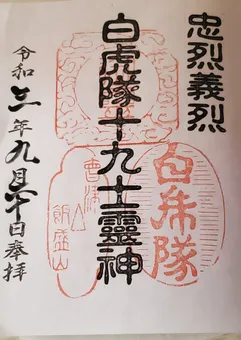 忠烈義烈
白虎隊十九士靈神
白虎隊
會津
飯盛山
令和三年九月六十日奉拝